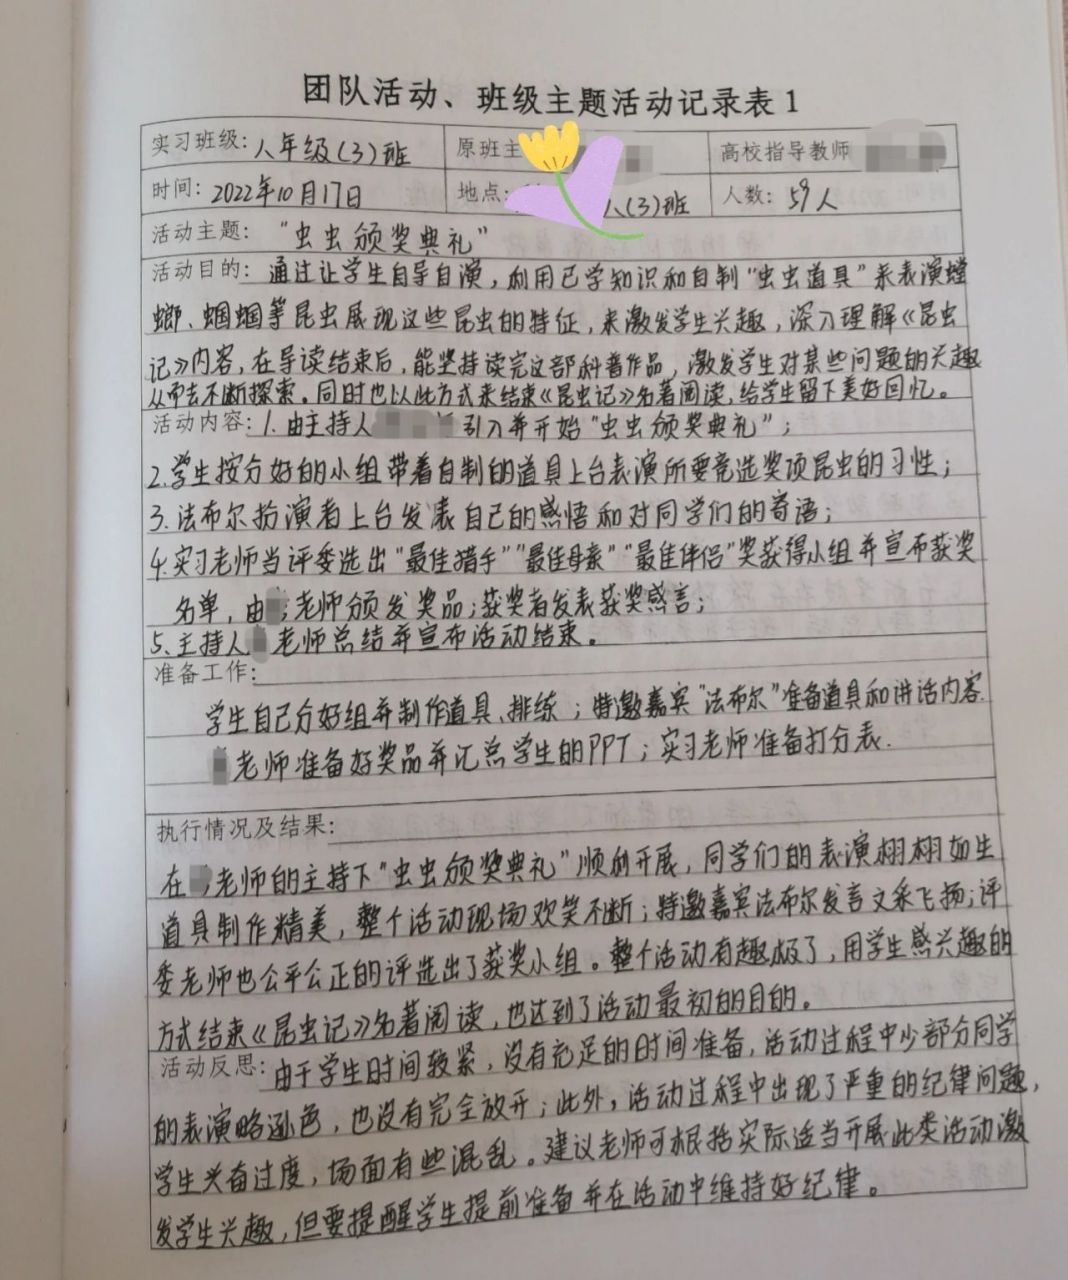 团队活动、班级主题活动记录表1
实习班级:八年级(3)班 原班主 高校指导教师
时间:2022年10月17日 地点: 八(3)班 人数:59人
活动主题:“虫虫颁奖典礼”
活动目的:通过让学生自导自演,利用已学知识和自制“虫虫道具”来表演螳
螂、蝈蝈等昆虫展现这些昆虫的特征,来激发学生兴趣,深入理解《昆虫
记》内容,在导读结束后,能坚持读完这部科普作品,激发学生对某些问题的兴趣
从而去不断探索。同时也以此方式来结束《昆虫记》名著阅读,给学生留下美好回忆。
活动内容:1.由主持人 引入并开始“虫虫颁奖典礼”;
2.学生按分好的小组带着自制的道具上台表演所要竞选奖项昆虫的习性;
3.法布尔扮演者上台发表自己的感悟和对同学们的寄语;
4.实习老师当评委选出“最佳猎手”“最佳母亲”“最佳伴侣”奖获得小组并宣布获奖
名单,由 老师颁发奖品;获奖者发表获奖感言;
5.主持人 老师总结并宣布活动结束。
准备工作:
学生自己分好组并制作道具、排练;特邀嘉宾“法布尔”准备道具和讲话内容.
老师准备好奖品并汇总学生的PPT;实习老师准备打分表.
执行情况及结果:
在 老师的主持下“虫虫颁奖典礼”顺利开展,同学们的表演栩栩如生
道具制作精美,整个活动现场欢笑不断;特邀嘉宾法布尔发言文采飞扬;评
委老师也公平公正的评选出了获奖小组。整个活动有趣极了,用学生感兴趣的
方式结束《昆虫记》名著阅读,也达到了活动最初的目的。
活动反思:由于学生时间较紧,没有充足的时间准备,活动过程中少部分同学
的表演略逊色,也没有完全放开;此外,活动过程中出现了严重的纪律问题,
学生兴奋过度,场面有些混乱。建议老师可根据实际适当开展此类活动激
发学生兴趣,但要提醒学生提前准备并在活动中维持好纪律。